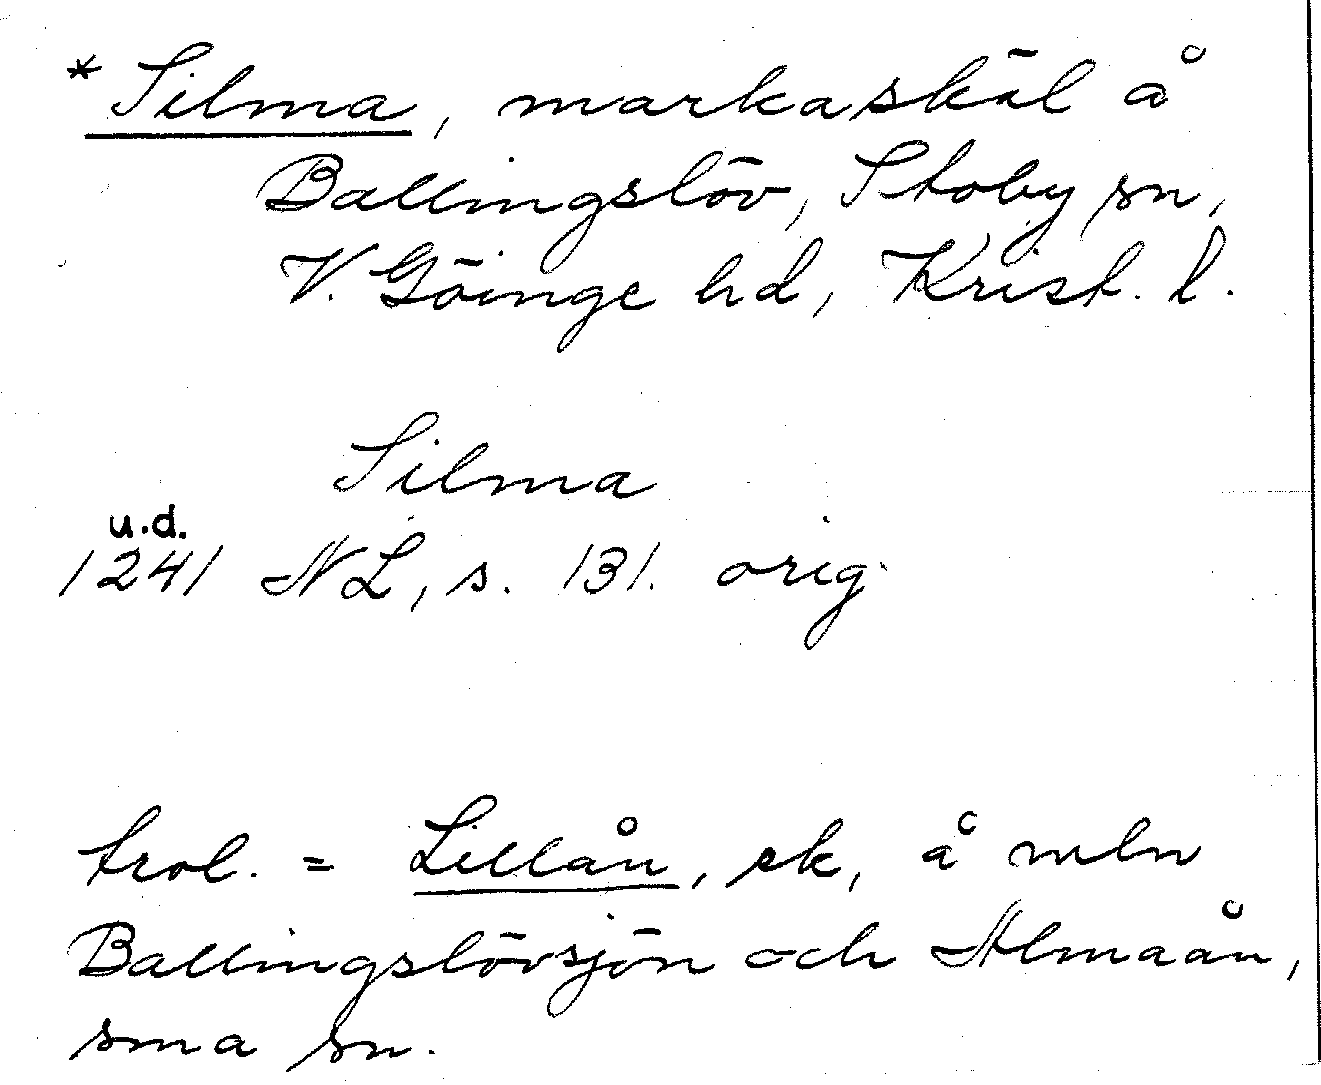 *Silma, markaskäl å
Ballingslöv, Stoby sn,
V. Göinge hd, Krist. l.
Silma
u.d.
1241 NL, s. 131. orig.
trol. = Lillån, ek, å mln
Ballingslövsjön och Almaån,
sma sn.